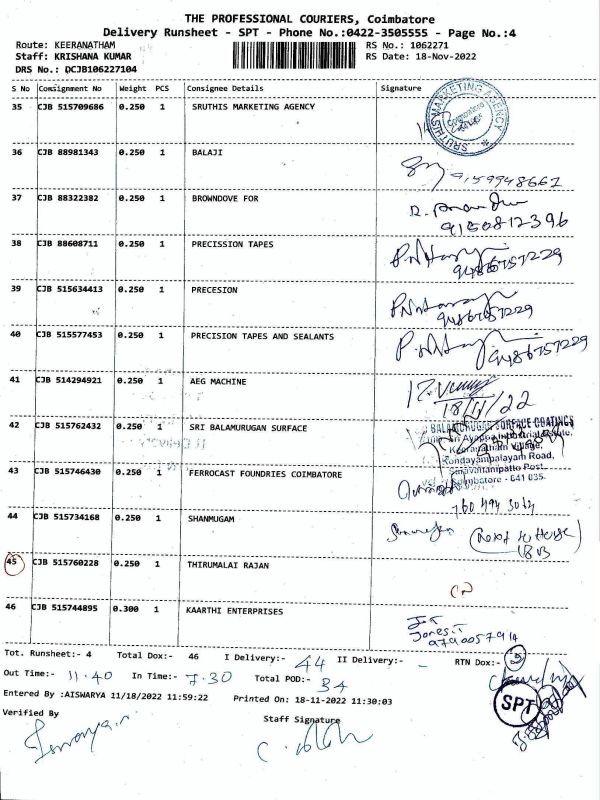 THE PROFESSIONAL COURIERS, Coimbatore
Delivery Runsheet - SPT - Phone No.:0422-3505555 - Page No.:4
Route: KEERANATHAM RS No.: 1062271
Staff: KRISHANA KUMAR RS Date: 18-Nov-2022
DRS No.: DCJB106227104
S No Consignment No Weight PCS Consignee Details Signature
35 CJB 515709686 0.250 1 SRUTHIS MARKETING AGENCY
SRUTHIS MARKETING AGENCY
36 CJB 88981343 0.250 1 BALAJI
9159948661
37 CJB 88322382 0.250 1 BROWNDOVE FOR
9150812396
38 CJB 88608711 0.250 1 PRECISSION TAPES
9486757229
39 CJB 515634413 0.250 1 PRECESION
9486757229
40 CJB 515577453 0.250 1 PRECISION TAPES AND SEALANTS
9486757229
41 CJB 514294921 0.250 1 AEG MACHINE
18/11/22
42 CJB 515762432 0.250 1 SRI BALAMURUGAN SURFACE
BALAMURUGAN SURFACE COATINGS
Keeranatham Village,
Kondayampalayam Road,
Saravanampatto Post
Coimbatore - 641 035.
43 CJB 515746430 0.250 1 FERROCAST FOUNDRIES COIMBATORE
44 CJB 515734168 0.250 1 SHANMUGAM
45 CJB 515760228 0.250 1 THIRUMALAI RAJAN
46 CJB 515744895 0.300 1 KAARTHI ENTERPRISES
9790057914
Tot. Runsheet:- 4 Total Dox:- 46 I Delivery:- 44 II Delivery:- - RTN Dox:-
Out Time:- 11.40 In Time:- 7.30 Total POD:- 34
Entered By :AISWARYA 11/18/2022 11:59:22 Printed On: 18-11-2022 11:30:03
SPT
Verified By Staff Signature